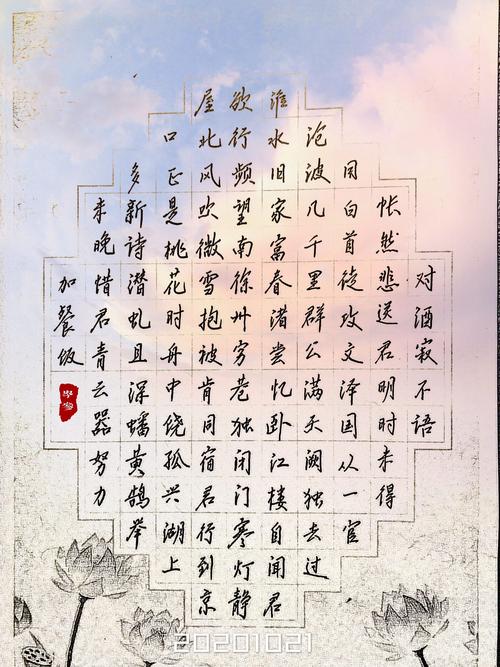 对酒寂不语
怅然悲送君明时未得
用白首徒攻文泽国从一官
沧波几千里群公满天阙独去过
淮水旧家富春渚尝忆卧江楼自闻君
欲行频望南徐州穷巷独闭门寒灯静
屋北风吹微雪抱被肯同宿君行到京
口正是桃花时舟中绕孤兴湖上
多新诗潜虬且深蟠黄鹄举
未晚惜君青云器努力
加餐饭
20201021